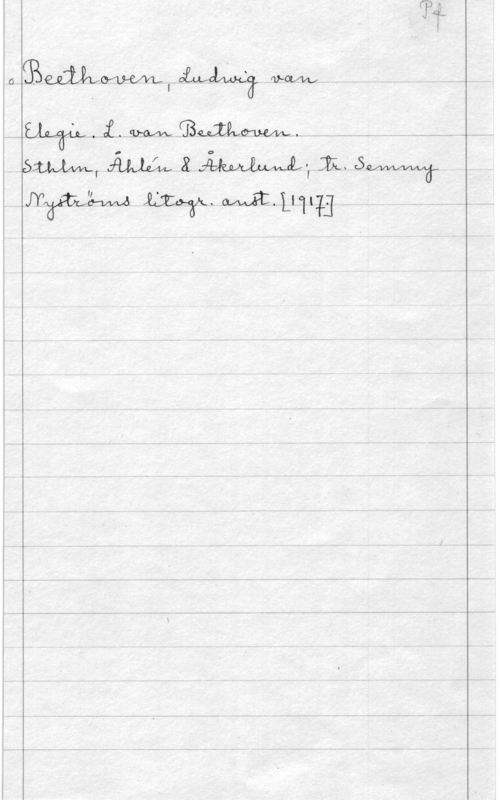 Pf
Beethoven, Ludwig van
Elegie. L. van Beethoven.
Sthlm, Åhlén & Åkerlund; tr. Semmy
Nyströms litogr. anst. [1917]